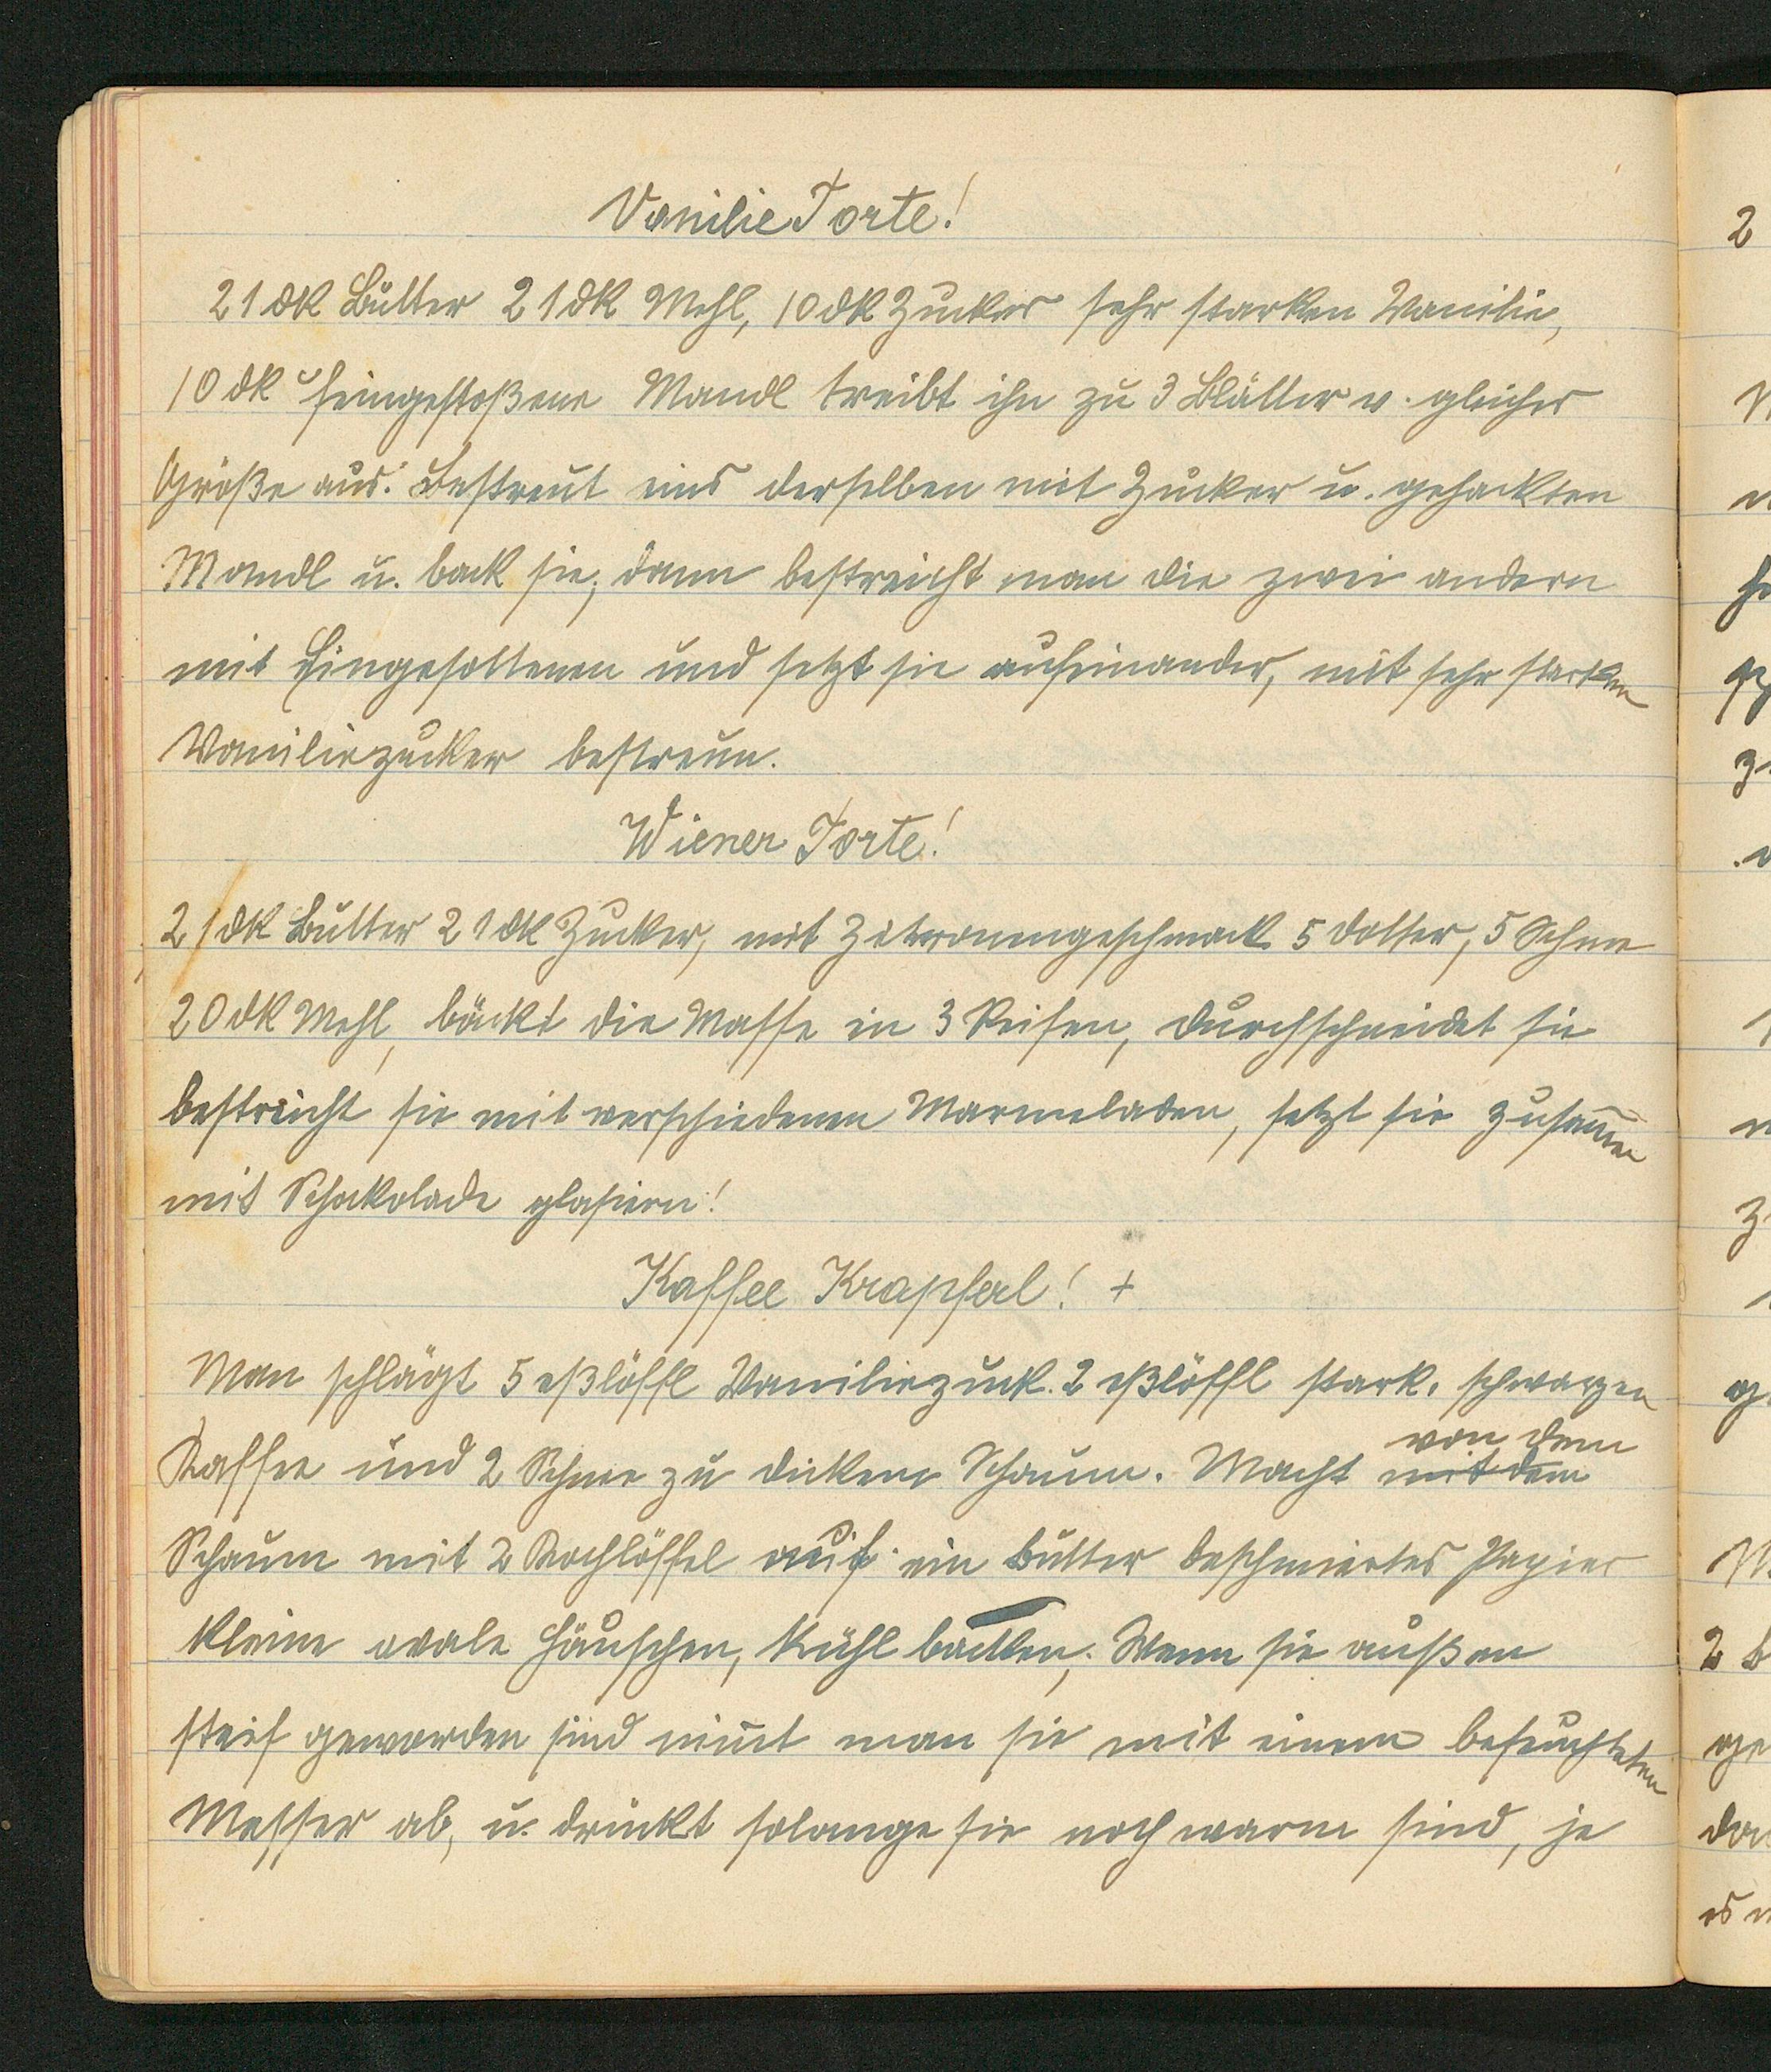 Vanilie Torte!
21 dk Butter 21 dk Mehl, 10 dk Zucker sehr starken Vanilie,
10 dk feingestoßene Mandl treibt ihn zu 3 Blätter v. gleicher
Größe aus. Bestreut eins derselben mit Zucker u. gehackten
Mandl u. back sie, dann bestreicht man die zwei andern
mit Eingesottenen und setzt sie aufeinander, mit sehr starken
Vaniliezucker bestreun.
Wiener Torte!
21 dk Butter 21 dk Zucker, mit Zitronengeschmack 5 Dotter, 5 Schnee
20 dk Mehl, bäckt die Masse in 3 Reifen, durchschneidet sie
bestreicht sie mit verschiedenen Marmeladen, setzt sie zusam̄en
mit Schokolade glasieren!
Kaffee Krapferl! +
Man schlägt 5 eßlöffl Vaniliezuck. 2 eßlöffl stark. schwarzen
von dem
Kaffee und 2 Schnee zu dickem Schaum. Macht mit dem
Schaum mit 2 Kochlöffel auf ein Butter beschmiertes Papier
kleine ovale Häuschen, kühl backen. Wenn sie außen
steif geworden sind nim̄t man sie mit einem befeuchteten
Messer ab, u. drückt solange sie noch warm sind, je
2
2 B